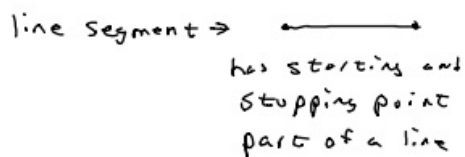 line segment →
has starting and
stopping point
part of a line